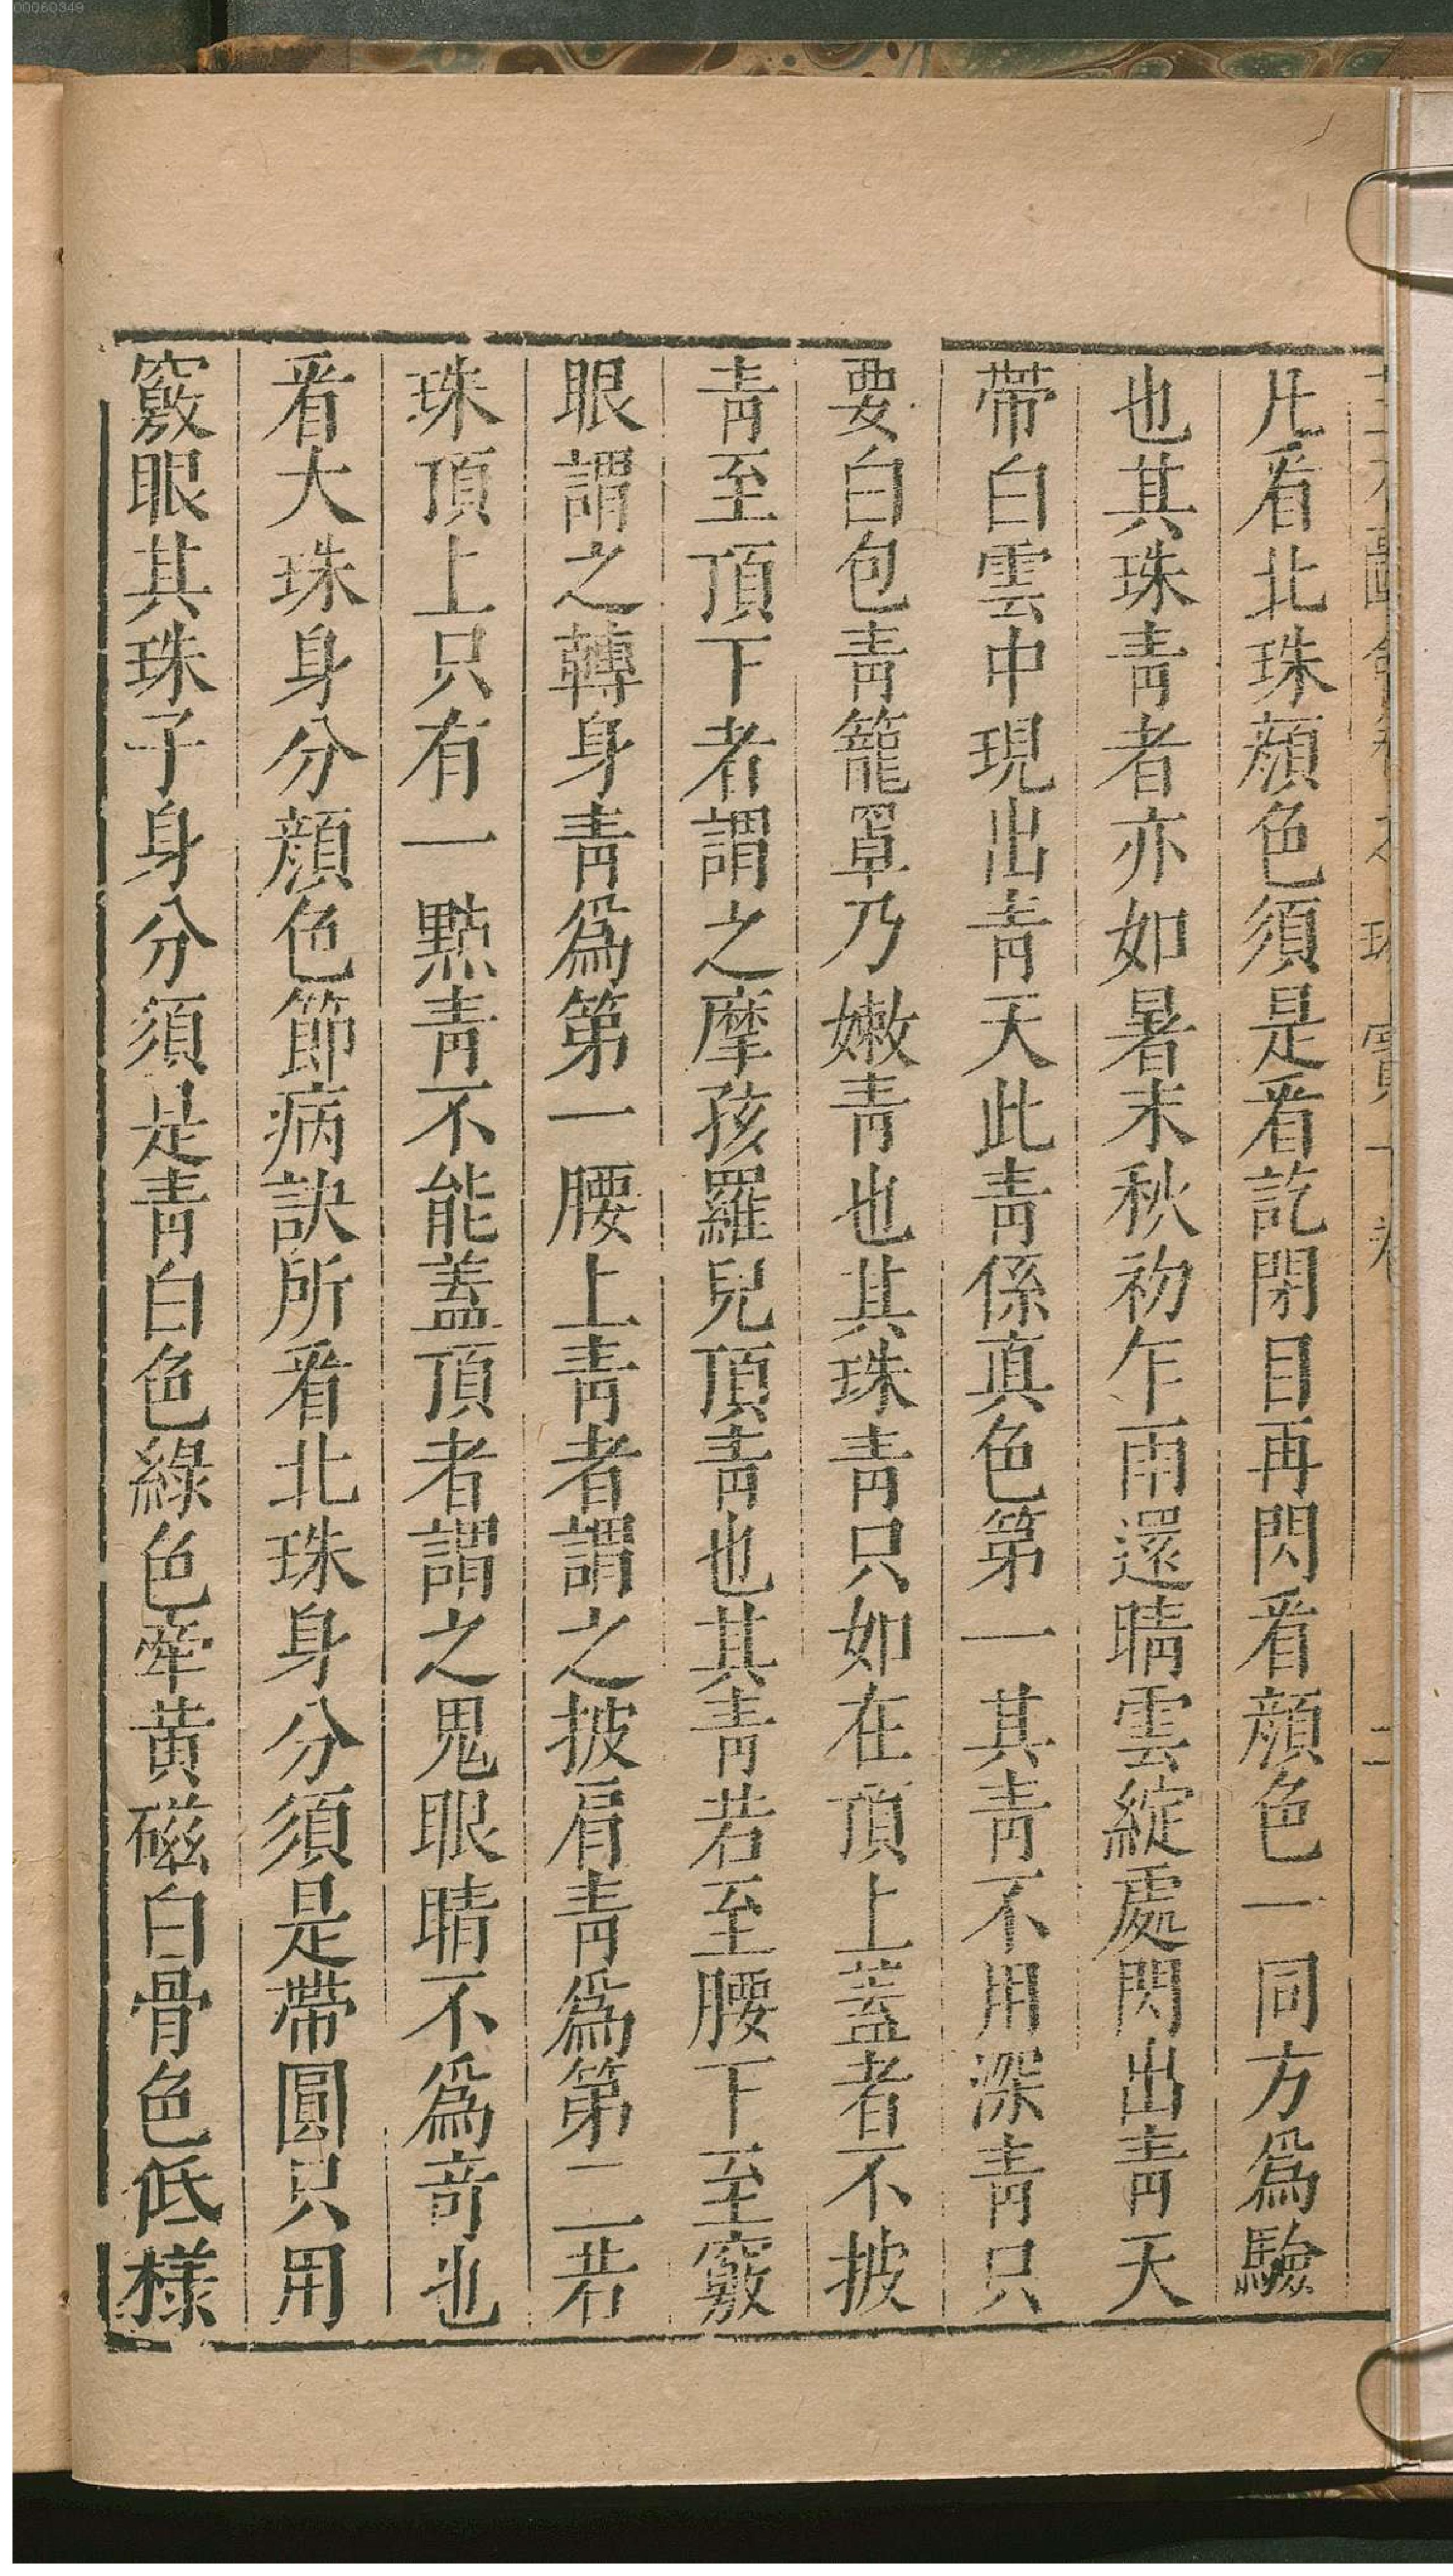 00060349
凢㸔北珠顔色須是㸔訖閉目再閃㸔顔色一同方為驗
也其珠青者亦如暑末秋初乍雨還晴雲綻處閃出青天
帶白雲中現出青天此青係真色第一其青不用深青只
要白包青籠罩乃嫩青也其珠青只如在頂上蓋者不披
青至頂下者謂之摩孩羅兒頂青也其青若至腰下至竅
眼謂之轉身青為第一腰上青者謂之披肩青為第二若
珠頂上只有一點青不能蓋頂者謂之鬼眼睛不為竒也
㸔大珠身分顔色節病訣所㸔北珠身分須是帶圓只用
竅眼其珠子身分須是青白色綠色牽黃磁白骨色低樣